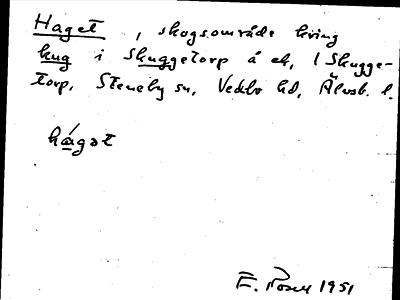 Haget, skogsområde kring
hug i Skuggetorp å ek, 1 Skugge-
torp, Steneby sn, Vedbo hd, Älvsb. l.
hágət
E. Rosell 1951